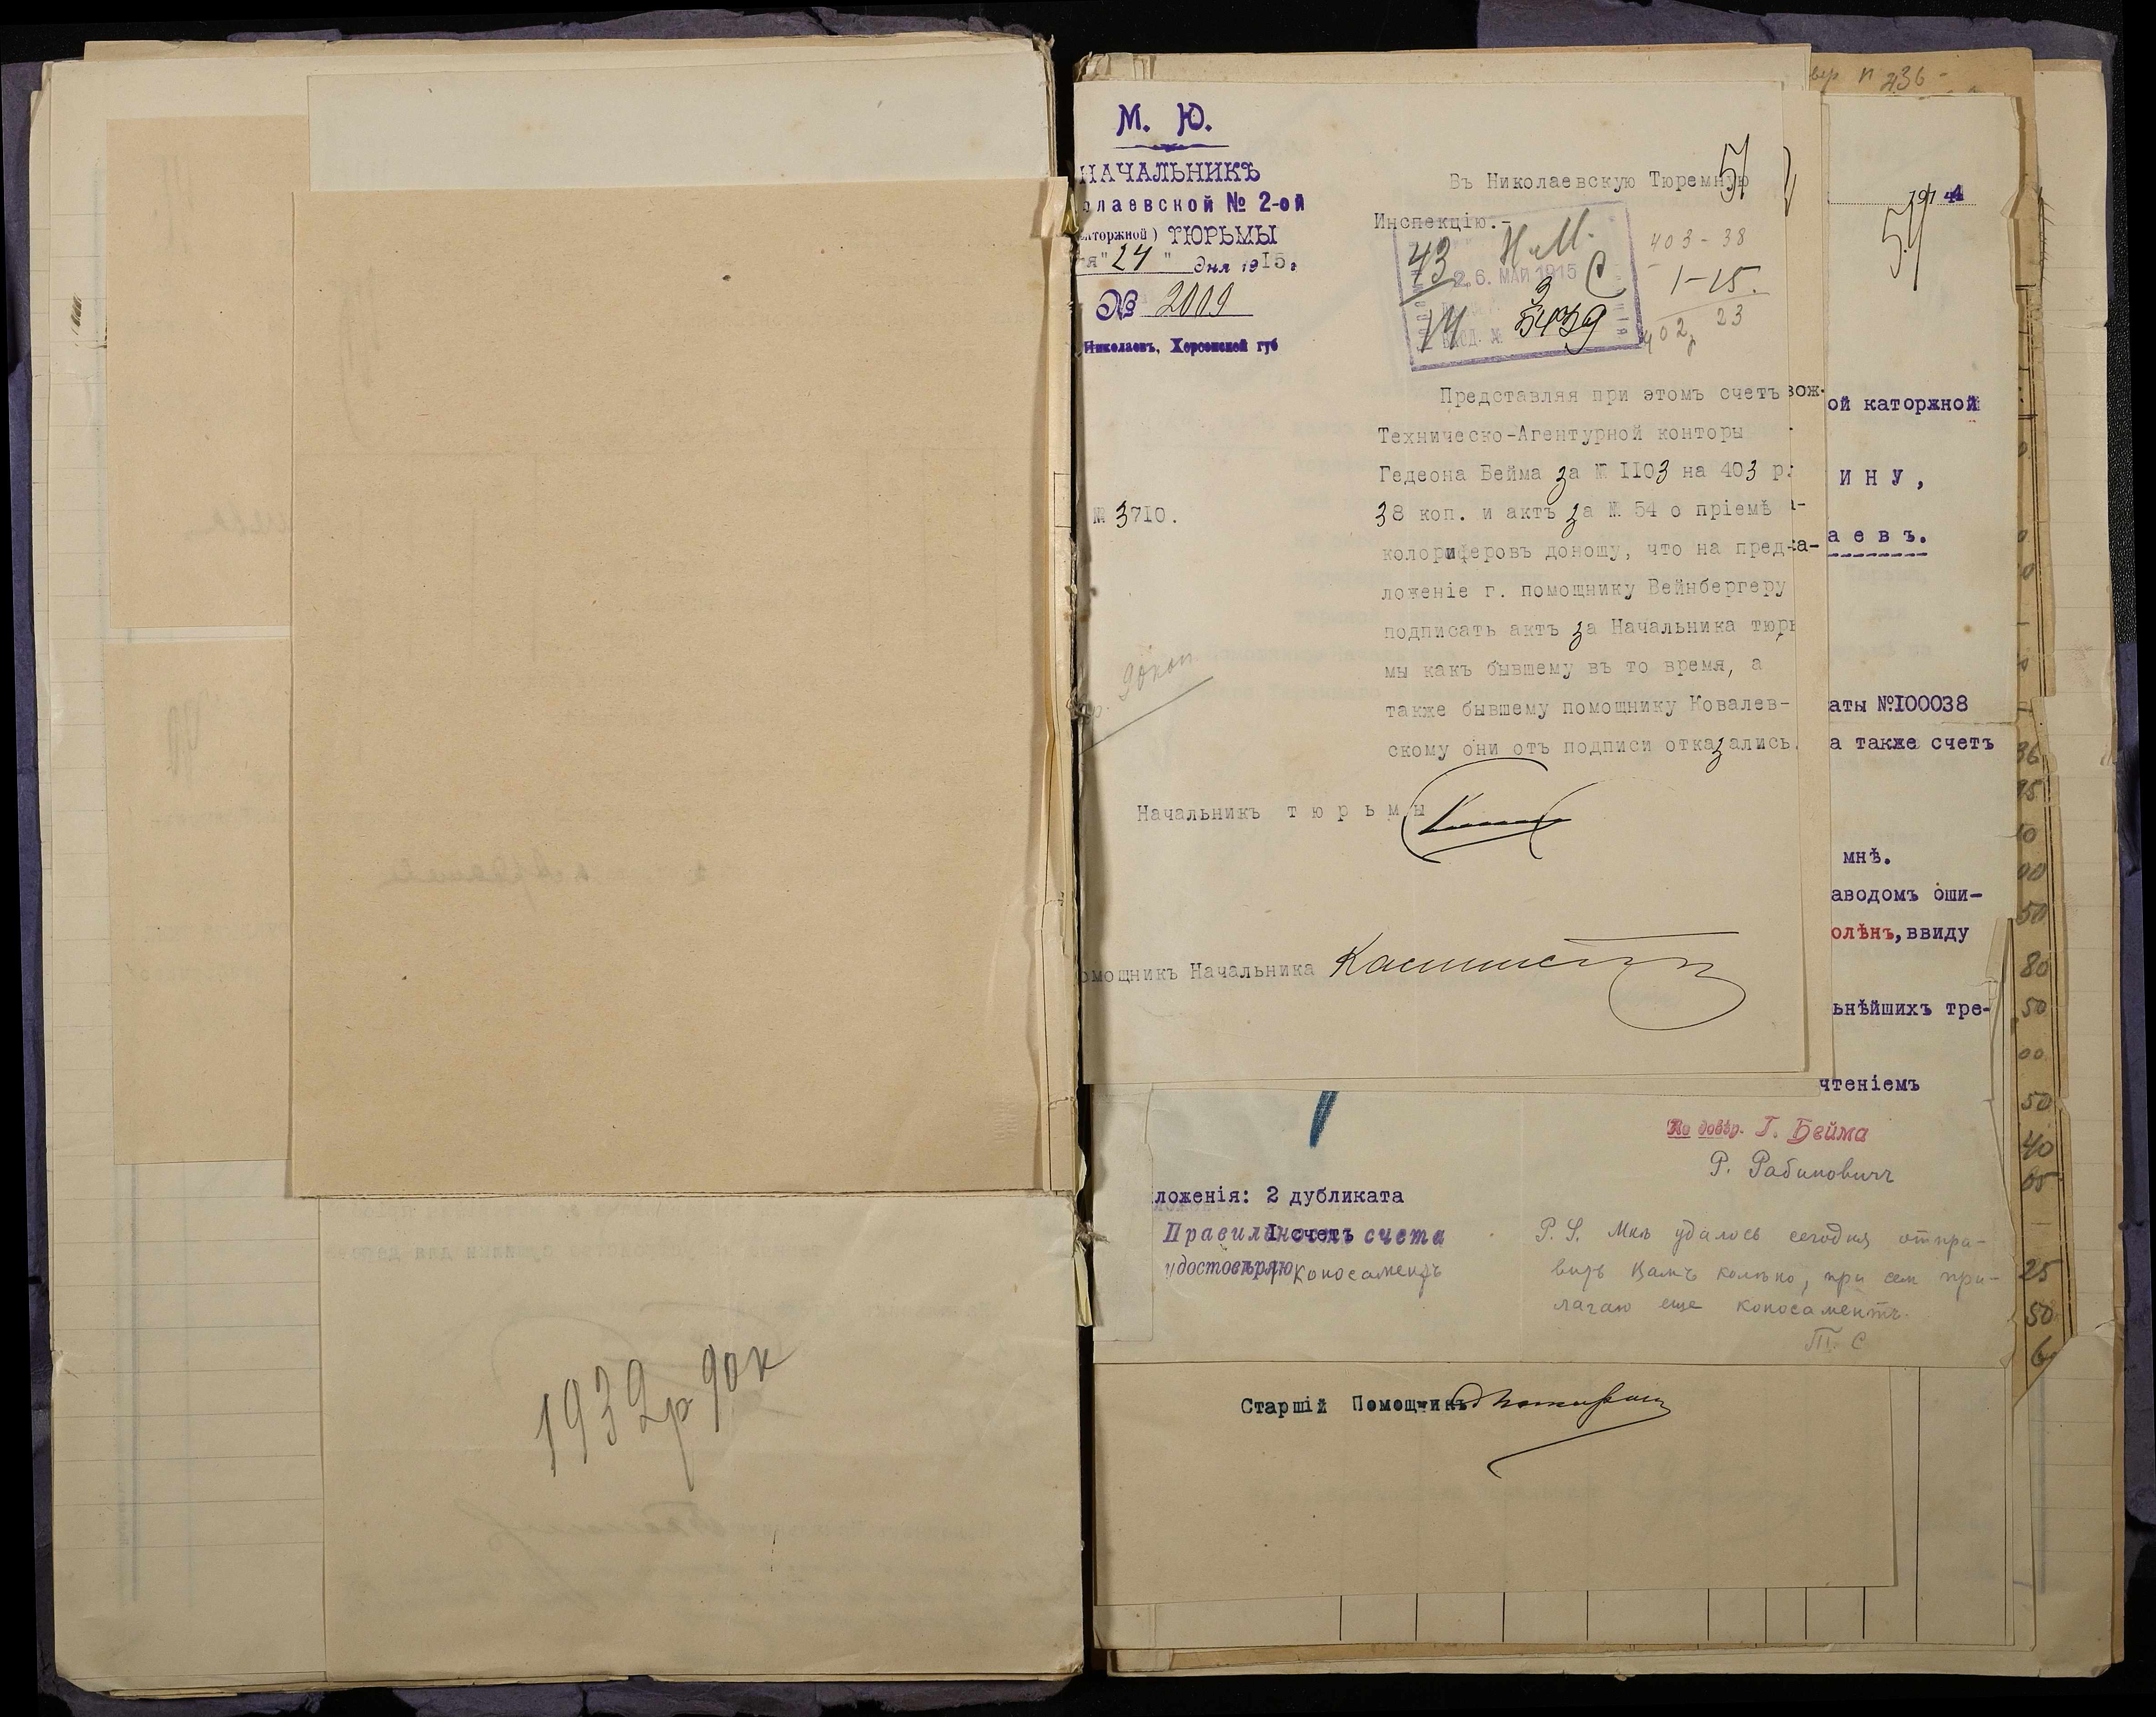 1932 р 90 к
вер n 236 -
М. Ю.
НАЧАЛЬНИКЪ
олаевской № 2-ой
аторжной) ТЮРЬМЫ
я "24" дня 1915г
№ 2009
Николаевъ, Херсонской губ
Въ Николаевскую Тюремную
Инспекцію.-
51
43
Н.М.
26. МАЙ 1915
ВХОД. №
403-38
1-15.
402, 23
№ 3710.
90 коп
Представляя при этомъ счетъ
Техническо-Агентурной конторы
Гедеона Бейма за № 1103 на 403 р.
38 коп. и актъ за № 54 о пріемѣ
колориферовъ доношу, что на пред-
ложеніе г. помощнику Вейнбергеру
подписать актъ за Начальника тюрь
мы какъ бывшему въ то время, а
также бывшему помощнику Ковалев-
скому они отъ подписи отказались.
Начальникъ тюрьмы
омощникъ Начальника
1914
54
вож-
ой каторжной
ИНУ,
аевъ.
а-
аты №100038
а также счетъ
мнѣ.
аводомъ оши-
олѣнъ, ввиду
ьнѣйшихъ тре-
чтеніемъ
По довѣр. Г. Бейма
Р. Рабиновичъ
ложенія: 2 дубликата
1 счетъ
Правильность счета
удостовѣряю
коносаментъ
P. S. Мнѣ удалось сегодня отпра-
вить Вамъ колѣно, при сем при-
лагаю еще коносаментъ.
Старшій Помощникъ
36
75
10
00
50
80
50
00
50
40
05
25
50
6